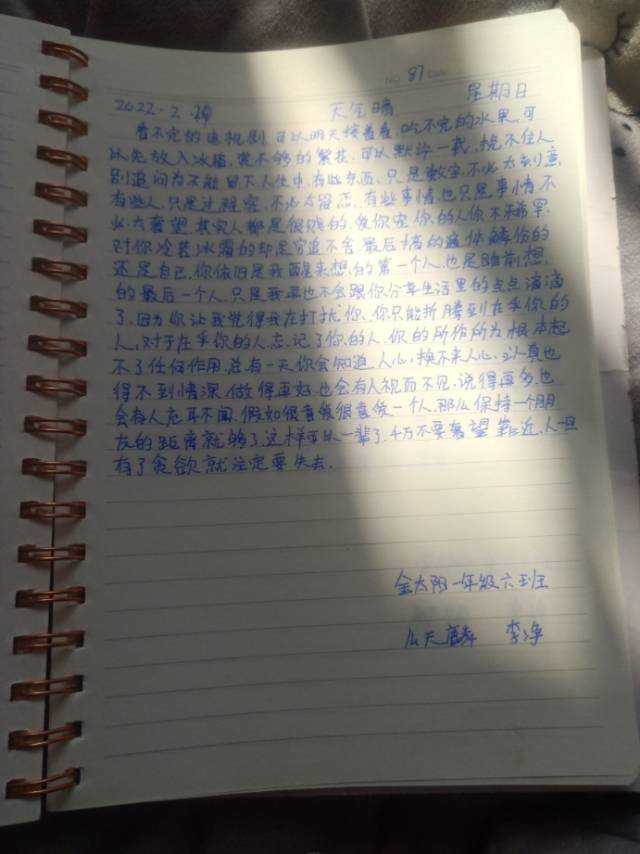 NO. 87 Date
2022-2-20 天气晴 星期日
看不完的电视剧,可以明天接着看,吃不完的水果,可
以先放入冰箱,赏不够的繁花,可以默许一栽,挽不住人
别追问为不能留下人生中,有些东西,只是数字,不必太刻意
有些人,只是过程客,不必太留恋,有些事情,也只是事情,不
必太奢望,其实人都是很贱的,爱你宠你的人你不稀罕,
对你冷若冰霜的却是穷追不舍,最后搞的遍体鳞伤的
还是自己,你依旧是我醒来想的第一个人,也是睡前想
的最后一个人,只是我再也不会跟你分享生活里的点点滴滴
了,因为你让我觉得我在打扰你,你只能折腾到在乎你的
人,对于在乎你的人忘记了你的人,你的所作所为根本起
不了任何作用,总有一天你会知道,人心,换不来人心,认真也
得不到情深,做得再好,也会有人视而不见,说得再多,也
会有人充耳不闻,假如很喜爱很喜爱一个人,那么保持一个朋
友的距离就够了,这样可以一辈了,千万不要奢望靠近,人一旦
有了贪欲就注定要失去.
金太阳一年级六班
么天麟 李净